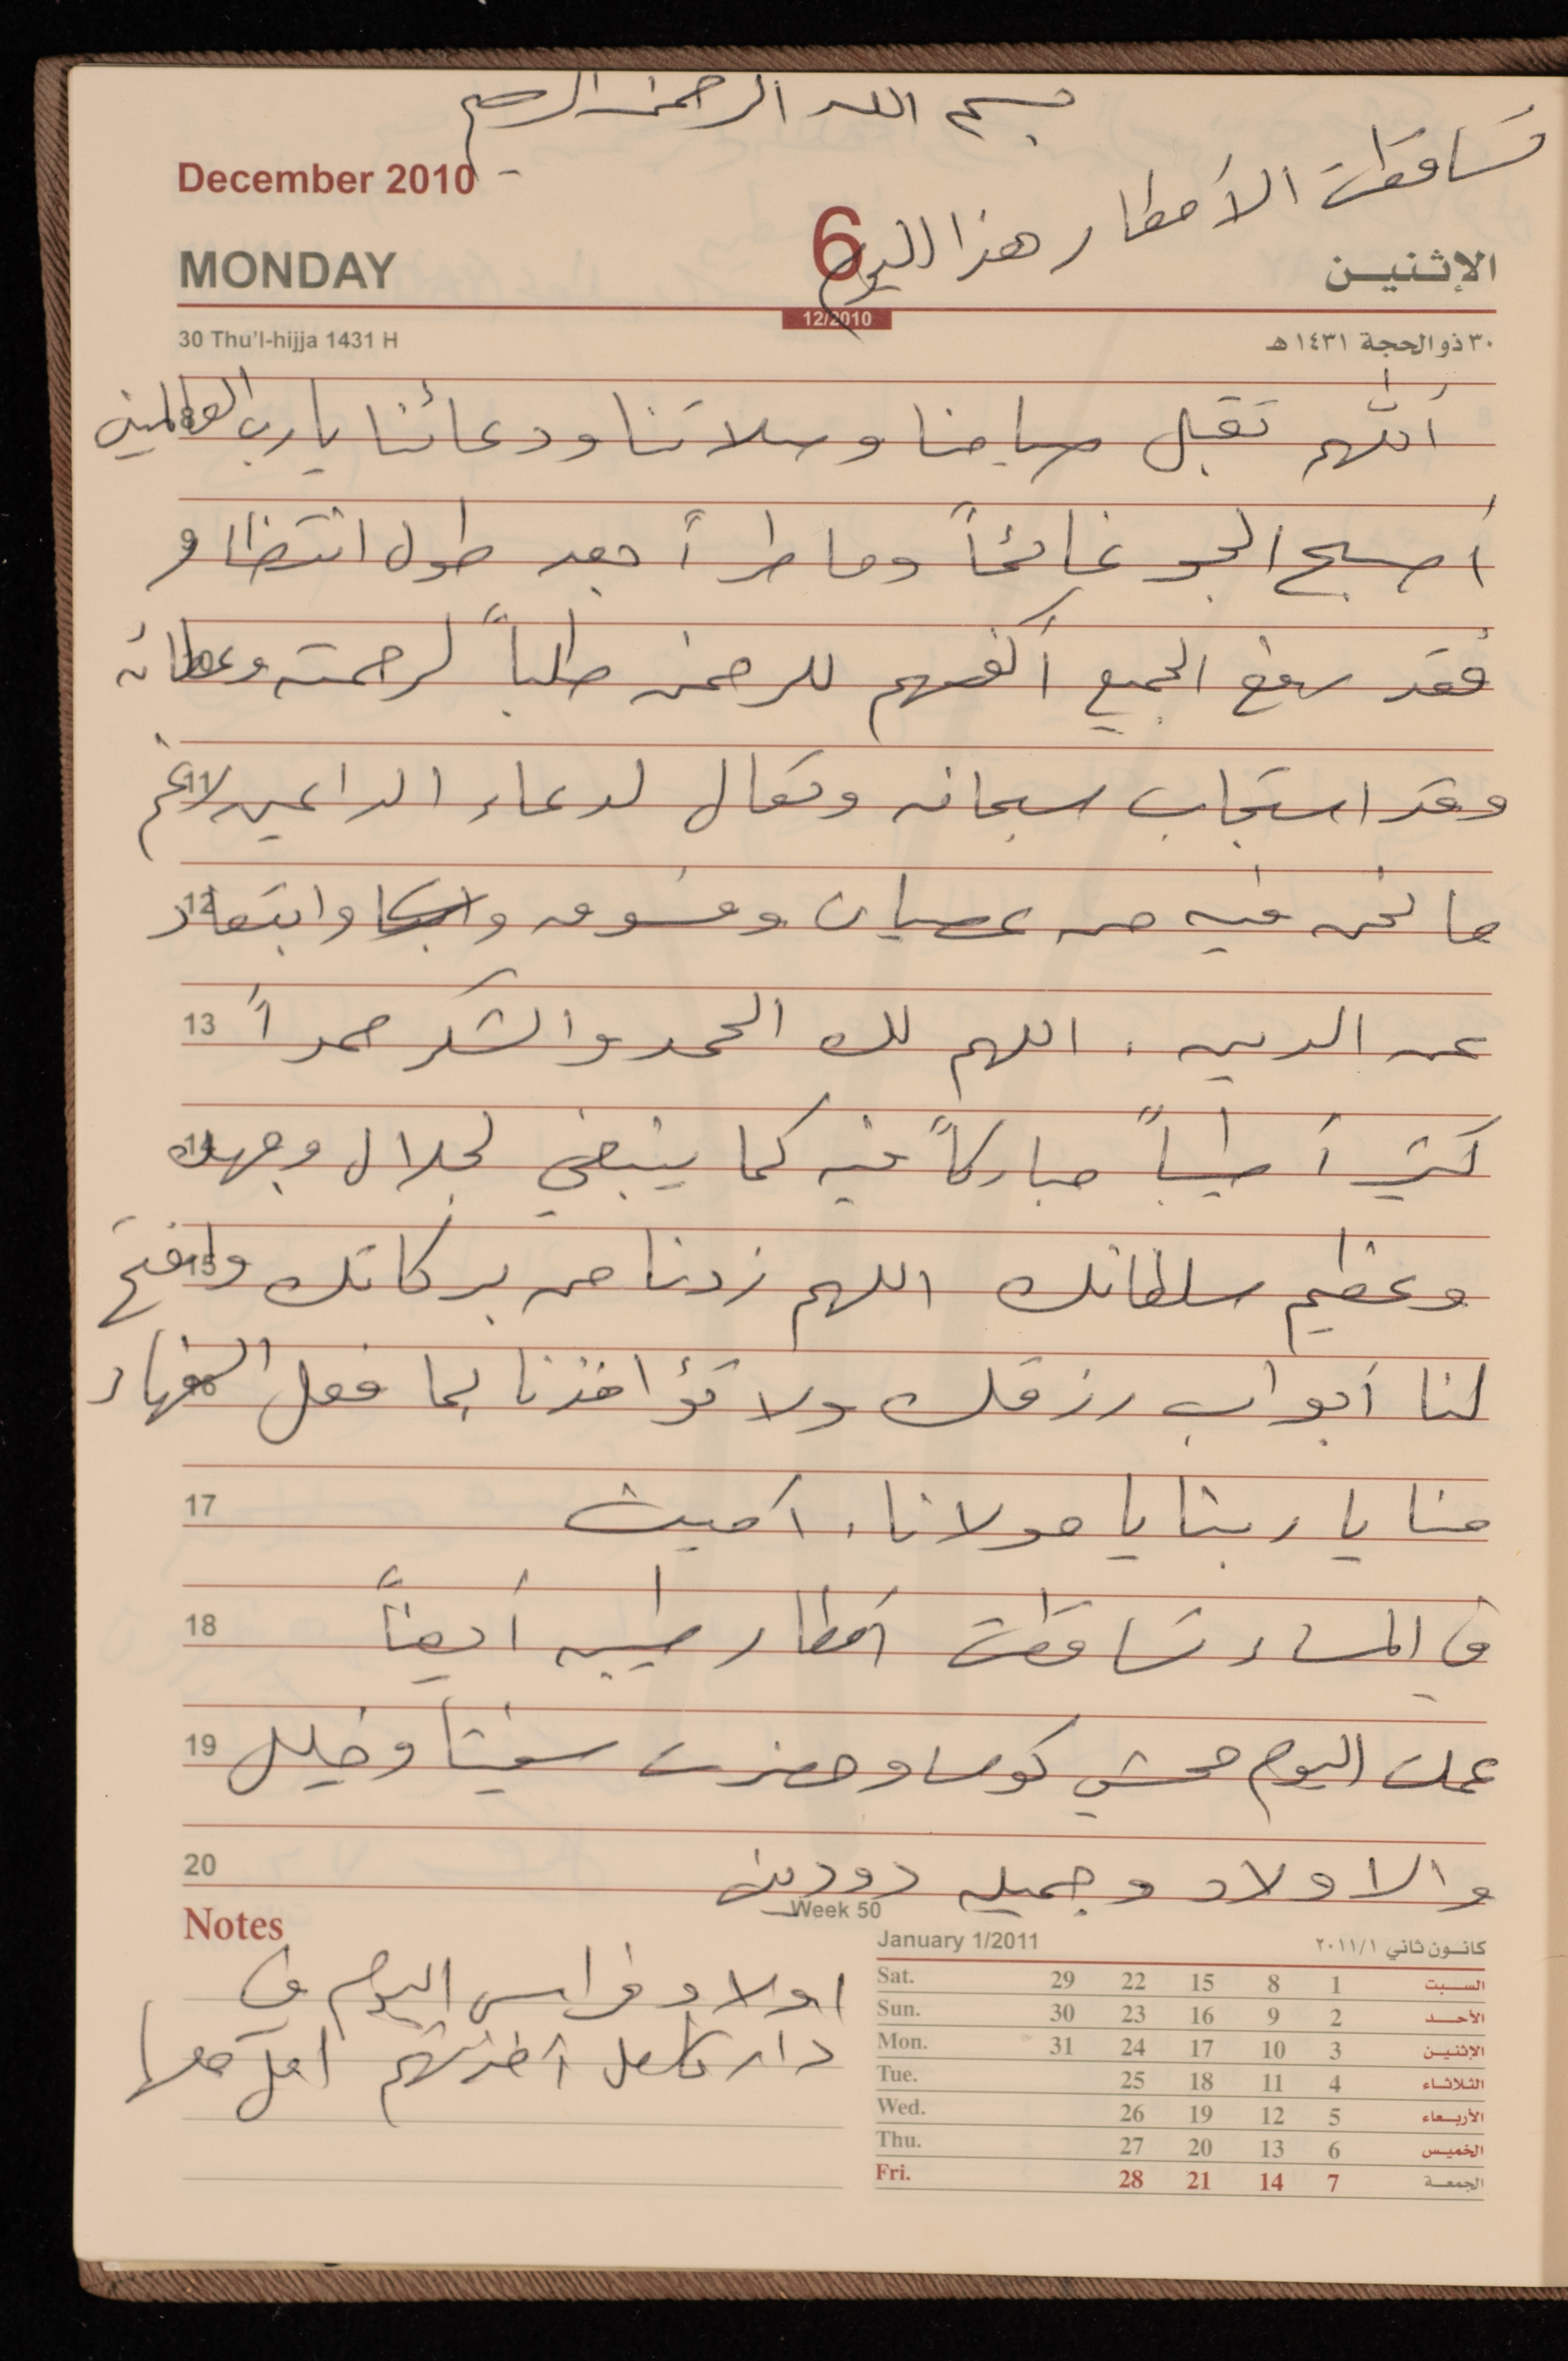 بسم الله الرحمن الرحيم
تساقطت الأمطار هذا اليوم
December 2010
6
MONDAY
الإثنيـن
12/2010
30 Thu'l-hijja 1431 H
٣٠ ذو الحجة ١٤٣١ هـ
أللهم تقبل صيامنا وصلاتنا ودعائنا يا رب العالمين
9 أصبح الجو غائماً وماطراً بعد طول انتظار
فقد رفع الجميع أكفهم للرحمن طلباً لرحمته وعطائه
11 وقد استجاب سبحانه وتعالى لدعاء الداعين لا غم
12 ما نحن فيه من عصيان وفسوق وابتعاد
13 عن الدين. اللهم لك الحمد والشكر حمداً
14 كثيراً طيباً مباركاً فيه كما ينبغي لجلال وجهك
15 وعظيم سلطانك اللهم زدنا من بركاتك وافتح
16 لنا أبواب رزقك ولا تؤاخذنا بما فعل السفهاء
17 منا يا ربنا يا مولانا. آمين
18 في المساء تساقطت أمطار طيبه أيضاً
19 عملت اليوم محشي كوسا وحضرت سفيتا وخليل
20 والاولاد وجميله دودين
Notes
اولاد فراس اليوم في
دار أخذتهم أمل معها
Week 50
January 1/2011
كانـون ثاني ٢٠١١/١
Sat. 29 22 15 8 1 السـبت
Sun. 30 23 16 9 2 الأحـد
Mon. 31 24 17 10 3 الإثنيـن
Tue. 25 18 11 4 الثـلاثـاء
Wed. 26 19 12 5 الأربـعاء
Thu. 27 20 13 6 الخميـس
Fri. 28 21 14 7 الجمعـة